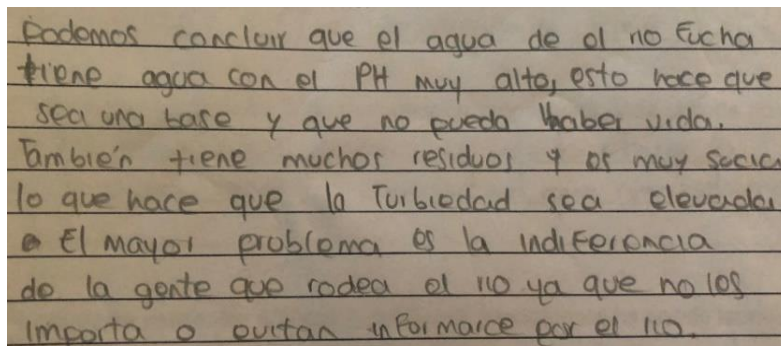 Podemos concluir que el agua de el rio Fucha
tiene agua con el PH muy alto, esto hace que
sea una base y que no pueda haber vida.
También tiene muchos residuos y es muy sucia
lo que hace que la Turbiedad sea elevada
El mayor problema es la indiferencia
de la gente que rodea el rio ya que no les
importa o evitan informarce por el rio.